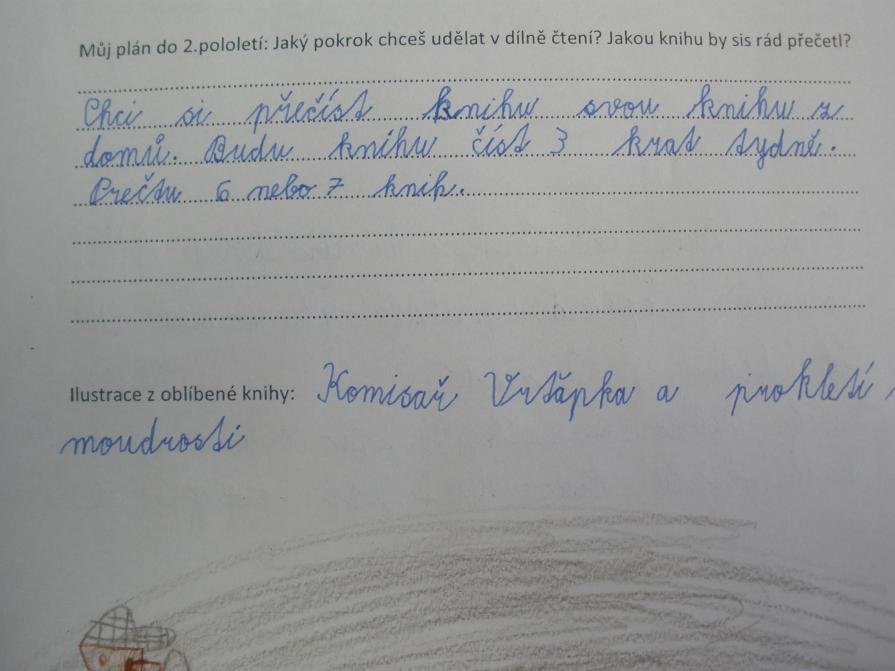 Můj plán do 2.pololetí: Jaký pokrok chceš udělat v dílně čtení? Jakou knihu by sis rád přečetl?
Chci si přečíst knihu svou knihu z
domů. Budu knihu číst 3 krat tydně.
Prečtu 6 nebo 7 knih.
Ilustrace z oblíbené knihy: Komisař Vrťápka a prokletí
moudrosti